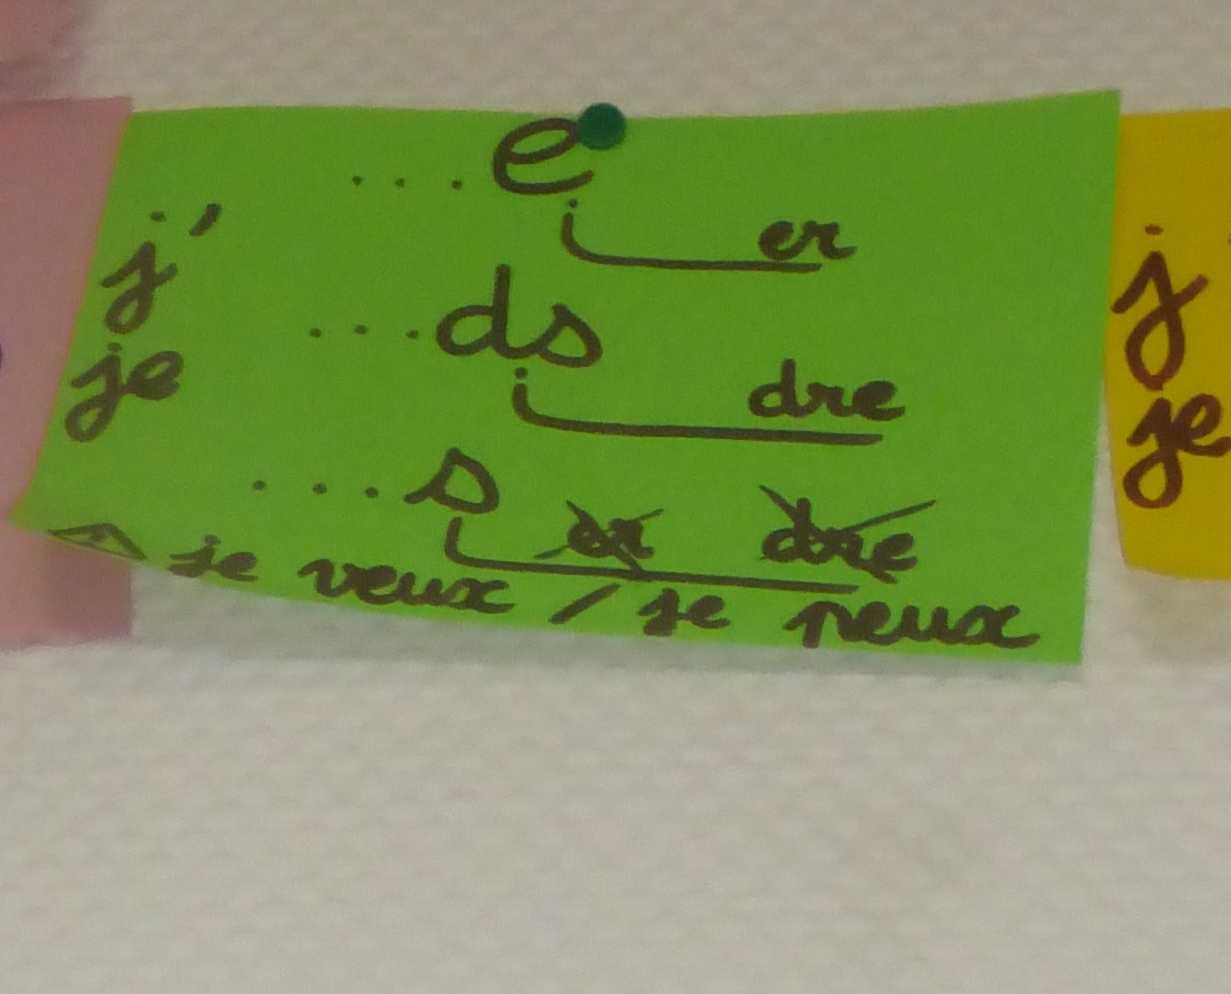 ...e
er
j'
...ds
je
dre
...s
er dre
⚠ je veux / je peux
j'
je